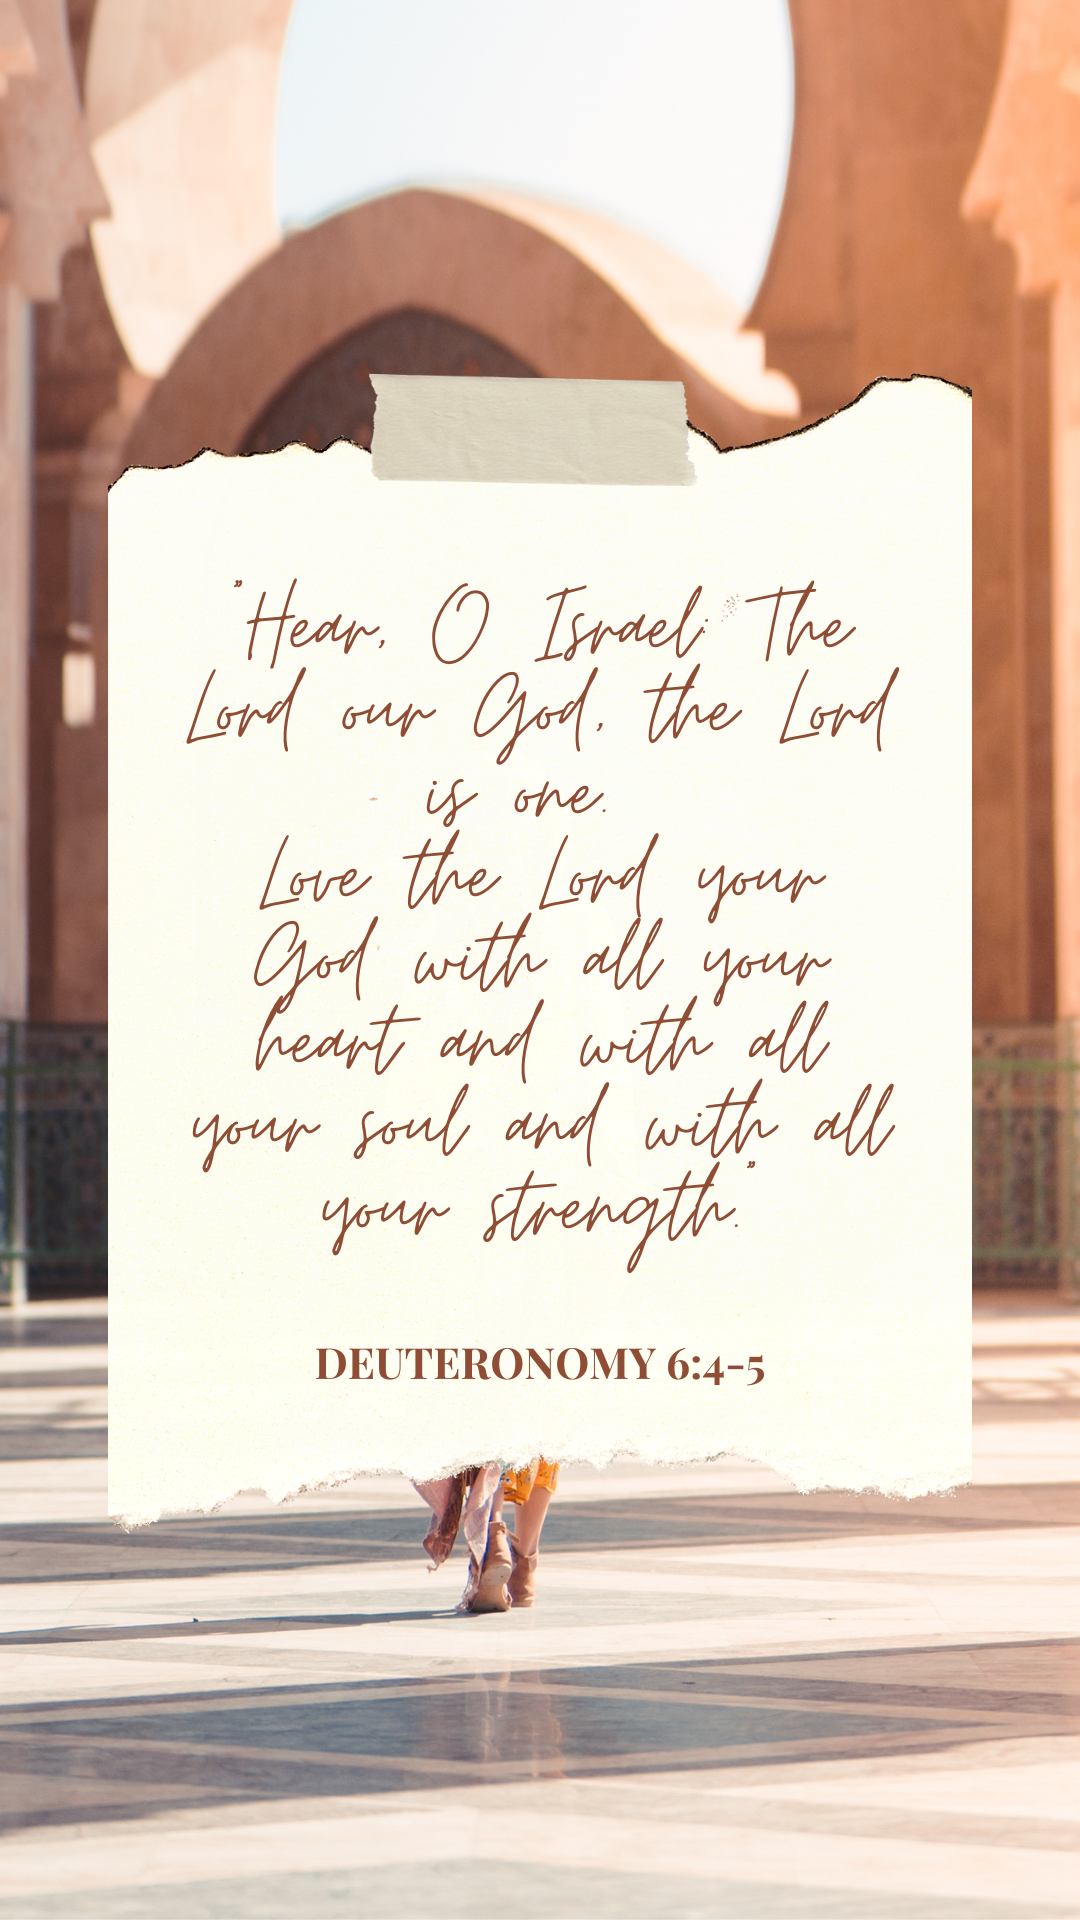 "Hear, O Israel: The
Lord our God, the Lord
is one.
Love the Lord your
God with all your
heart and with all
your soul and with all
your strength."
DEUTERONOMY 6:4-5